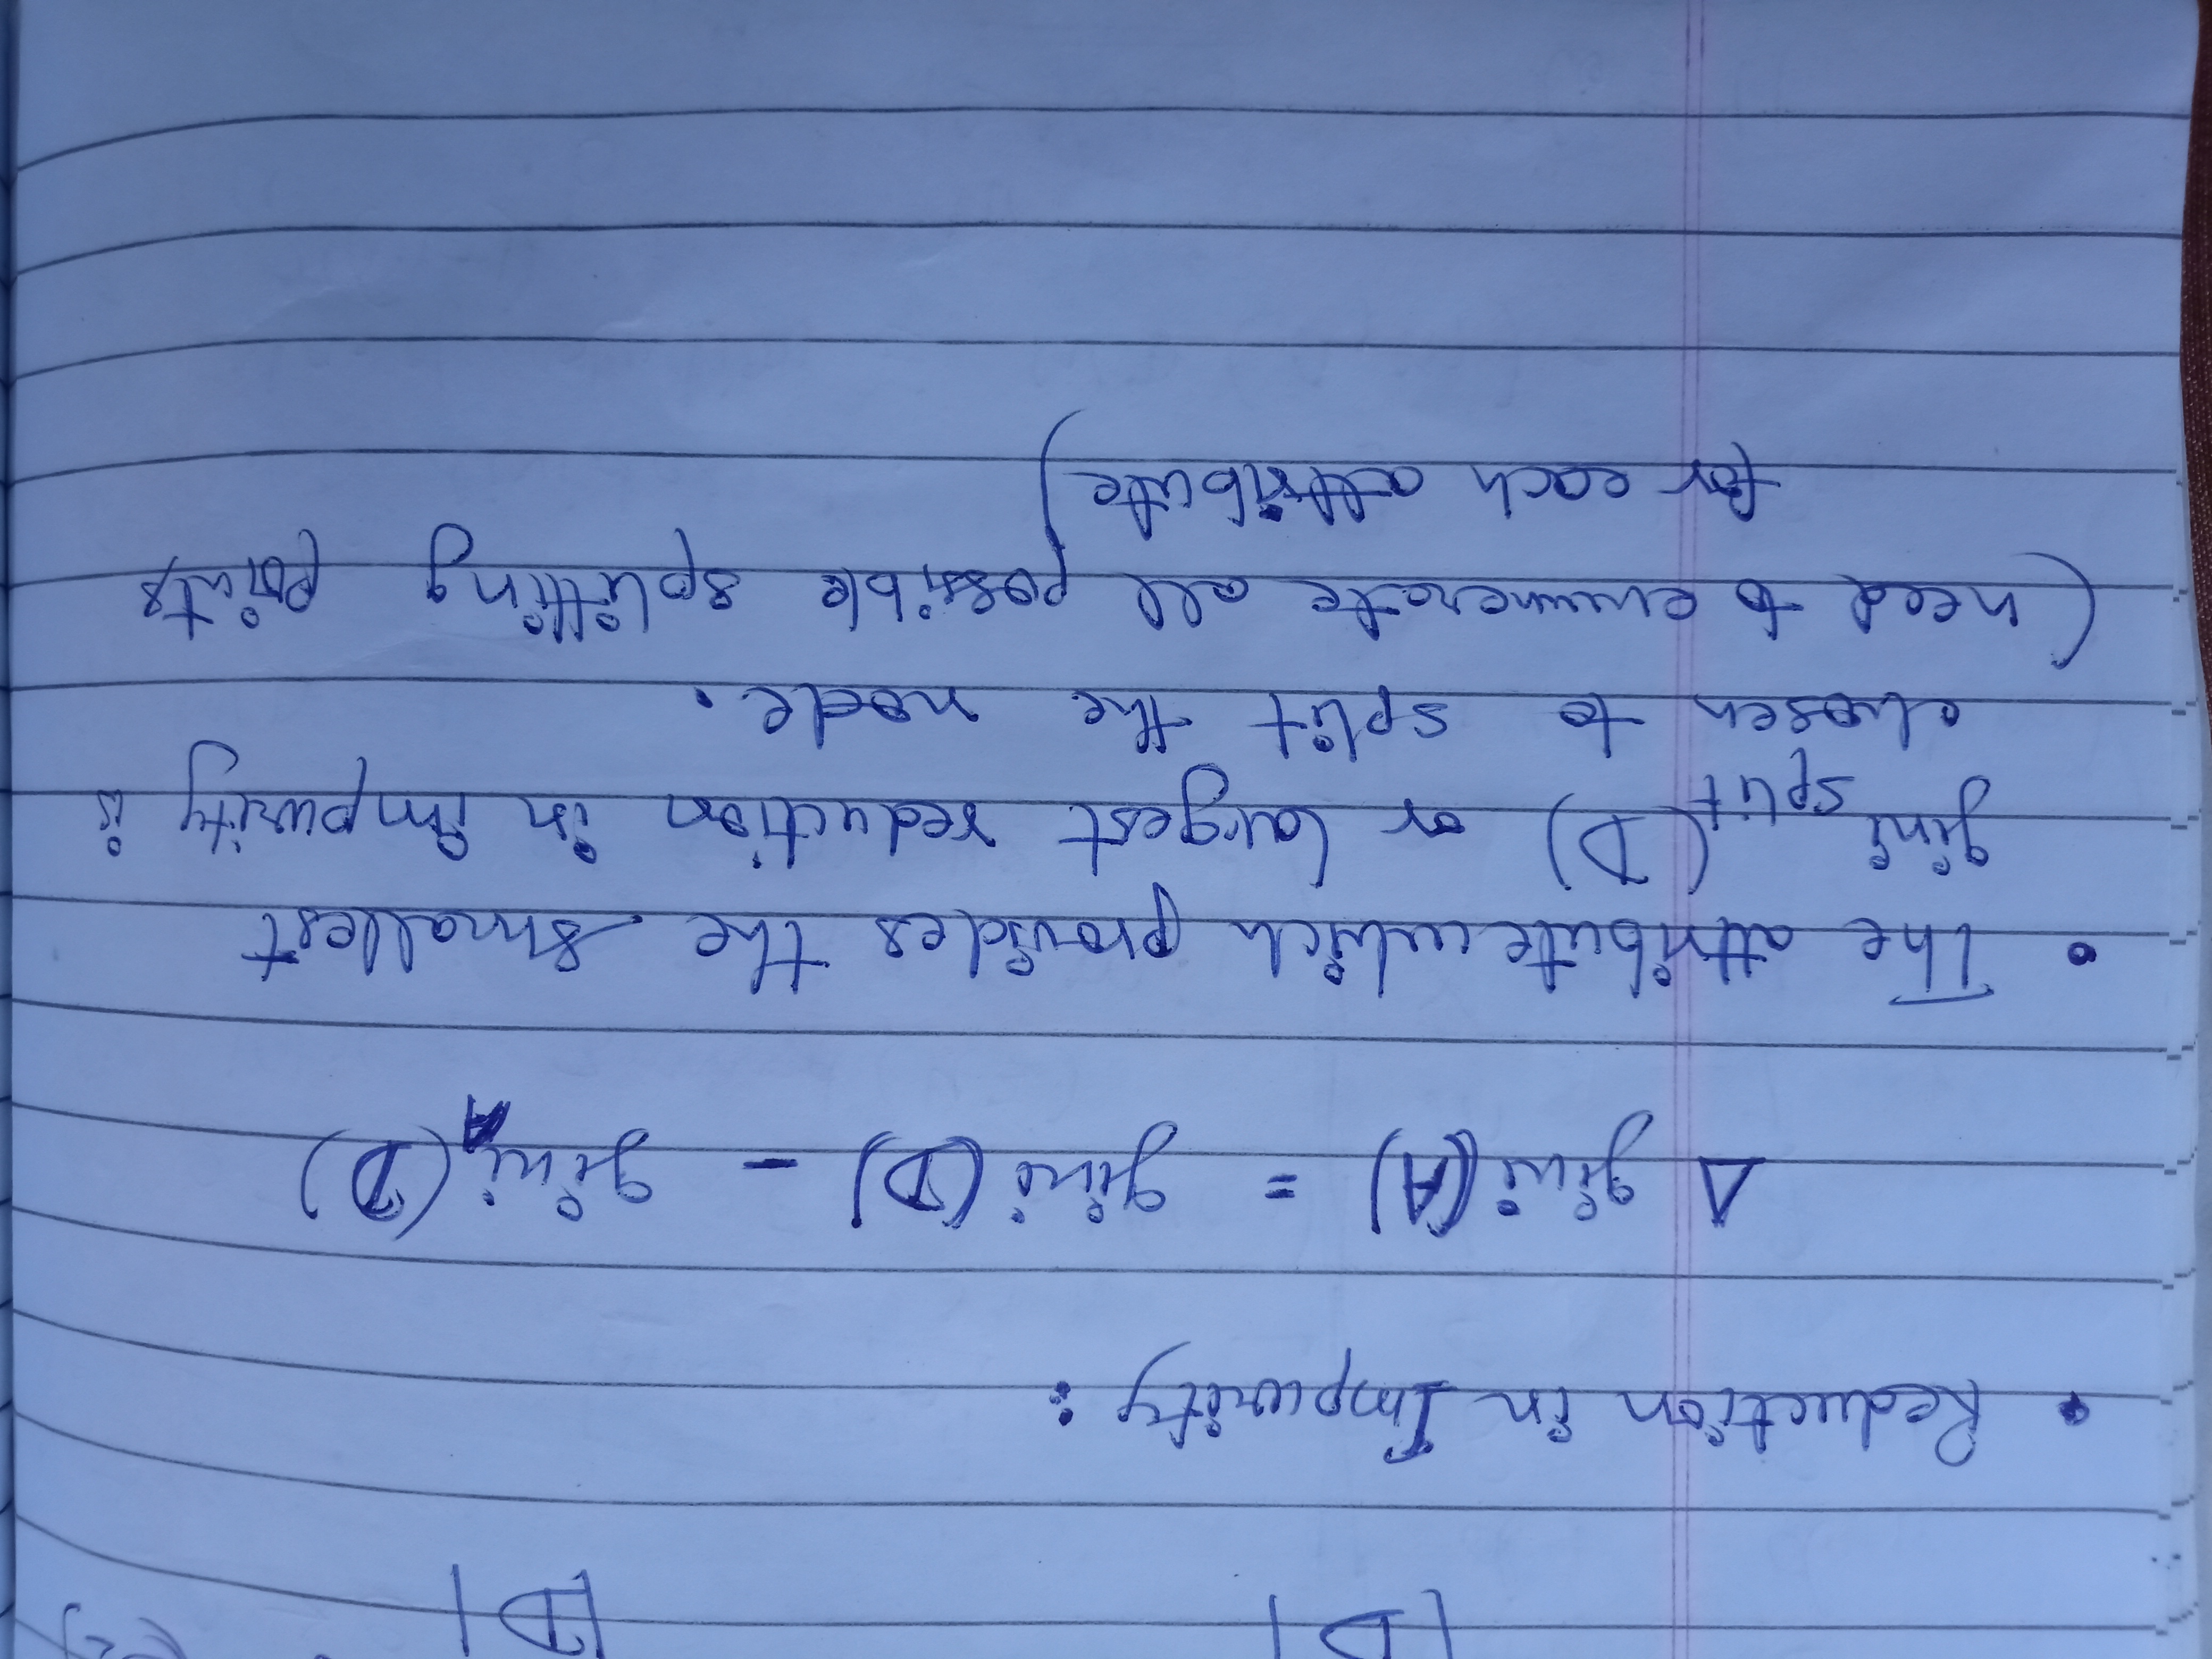 |D| |D|
• Reduction in Impurity :
Δ gini(A) = gini(D) - gini_A(D)
• The attribute which provides the smallest
gini_split(D) or largest reduction in impurity is
chosen to split the node.
(need to enumerate all possible splitting points
for each attribute)